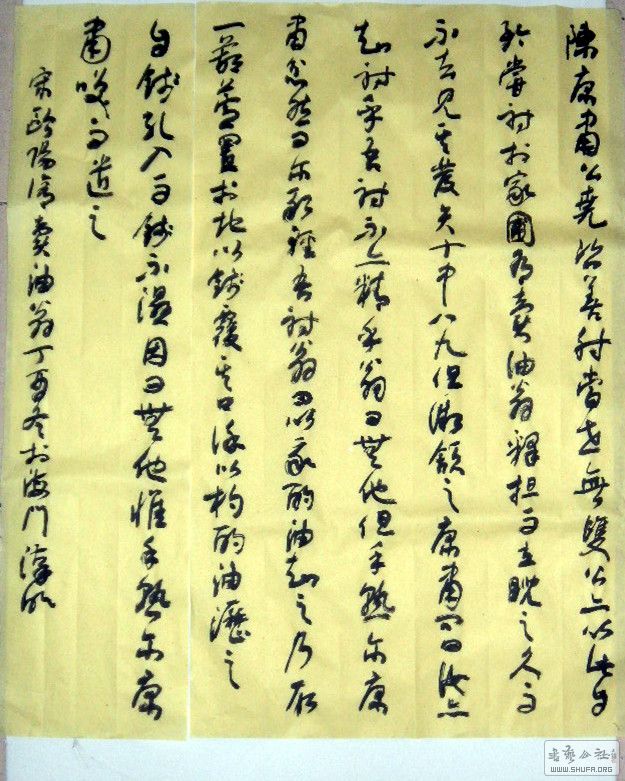 陳康肅公堯咨善射當世無雙公亦以此自
矜嘗射於家圃有賣油翁釋担而立睨之久而
不去見其發矢十中八九但微頷之康肅問曰汝亦
知射乎吾射不亦精乎翁曰無他但手熟尔康
肅忿然曰尔敢輕吾射翁曰以我酌油知之乃取
一葫蘆置於地以錢覆其口徐以杓酌油瀝之
自錢孔入而錢不濕因曰無他惟手熟尔康
肅咲而遣之
宋歐陽脩賣油翁丁酉冬於海門
書藝公社
WWW.SHUFA.ORG